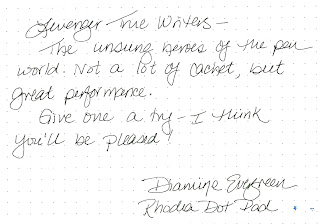 Levenger True Writers -
The unsung heroes of the pen
world. Not a lot of cachet, but
great performance.
Give one a try - I think
you'll be pleased!
Diamine Evergreen
Rhodia Dot Pad